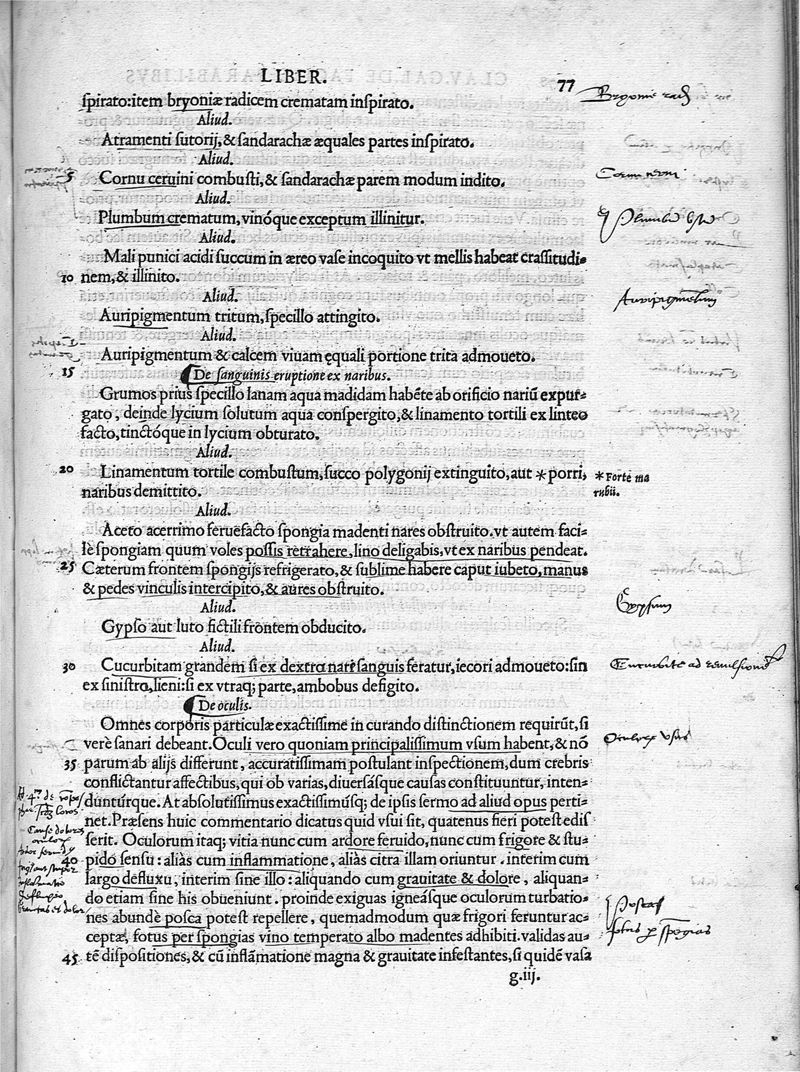 LIBER. 77
spirato:item bryoniæ radicem crematam inspirato.
Aliud.
Atramenti sutorij,& sandarachæ æquales partes inspirato.
Aliud.
5 Cornu ceruini combusti,& sandarachæ parem modum indito.
Aliud.
Plumbum crematum, vinóque exceptum illinitur.
Aliud.
Mali punici acidi succum in æreo vase incoquito vt mellis habeat crassitudi-
10 nem,& illinito.
Aliud.
Auripigmentum tritum, specillo attingito.
Aliud.
Auripigmentum & calcem viuam ęquali portione trita admoueto.
15 De sanguinis eruptione ex naribus.
Grumos prius specillo lanam aqua madidam habẽte ab orificio nariũ expur-
gato, deinde lycium solutum aqua conspergito,& linamento tortili ex linteo
facto,tinctóque in lycium obturato.
Aliud.
20 Linamentum tortile combustum, succo polygonij extinguito, aut *porri,
naribus demittito.
*Forte ma
rubii.
Aliud.
Aceto acerrimo feruefacto spongia madenti nares obstruito. vt autem faci-
lè spongiam quum voles possis retrahere, lino deligabis, vt ex naribus pendeat.
25 Cæterum frontem spongijs refrigerato,& sublime habere caput iubeto, manus
& pedes vinculis intercipito,& aures obstruito.
Aliud.
Gypso aut luto fictili frontem obducito.
Aliud.
30 Cucurbitam grandem si ex dextra nari sanguis feratur, iecori admoueto: sin
ex sinistra, lieni: si ex vtraq; parte, ambobus defigito.
De oculis.
Omnes corporis particulæ exactissime in curando distinctionem requirũt, si
verè sanari debeant. Oculi vero quoniam principalissimum vsum habent,& nõ
35 parum ab alijs differunt, accuratissimam postulant inspectionem, dum crebris
conflictantur affectibus, qui ob varias, diuersásque causas constituuntur, inten-
duntúrque. At absolutissimus exactissimúsq; de ipsis sermo ad aliud opus perti-
net. Præsens huic commentario dicatus quid vsui sit, quatenus fieri potest disse-
serit. Oculorum itaq; vitia nunc cum ardore feruido, nunc cum frigore & stu-
40 pido sensu: aliàs cum inflammatione, aliàs citra illam oriuntur. interim cum
largo defluxu, interim sine illo: aliquando cum grauitate & dolore, aliquan-
do etiam sine his obueniunt. proinde exiguas igneásque oculorum turbatio-
nes abundè posca potest repellere, quemadmodum quæ frigori feruntur ac-
ceptæ, fotus per spongias vino temperato albo madentes adhibiti. validas au-
45 tẽ dispositiones,& cũ inflãmatione magna & grauitate infestantes, si quidẽ vasa
g.iij.
Auripigmentum
Gypsum